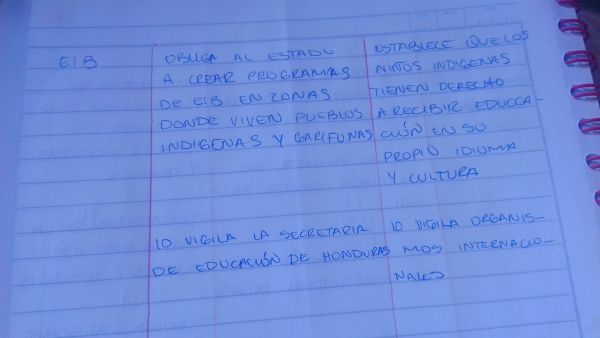 EIB
OBLIGA AL ESTADO
A CREAR PROGRAMAS
DE EIB EN ZONAS
DONDE VIVEN PUEBLOS
INDIGENAS Y GARIFUNAS
ESTABLECE QUE LOS
NIÑOS INDIGENAS
TIENEN DERECHO
A RECIBIR EDUCCA-
CIÓN EN SU
PROPIO IDIOMA
Y CULTURA
lO VIGILA LA SECRETARIA
DE EDUCACIÓN DE HONDURAS
lO VIGILA ORGANIS-
MOS INTERNACIO-
NALES